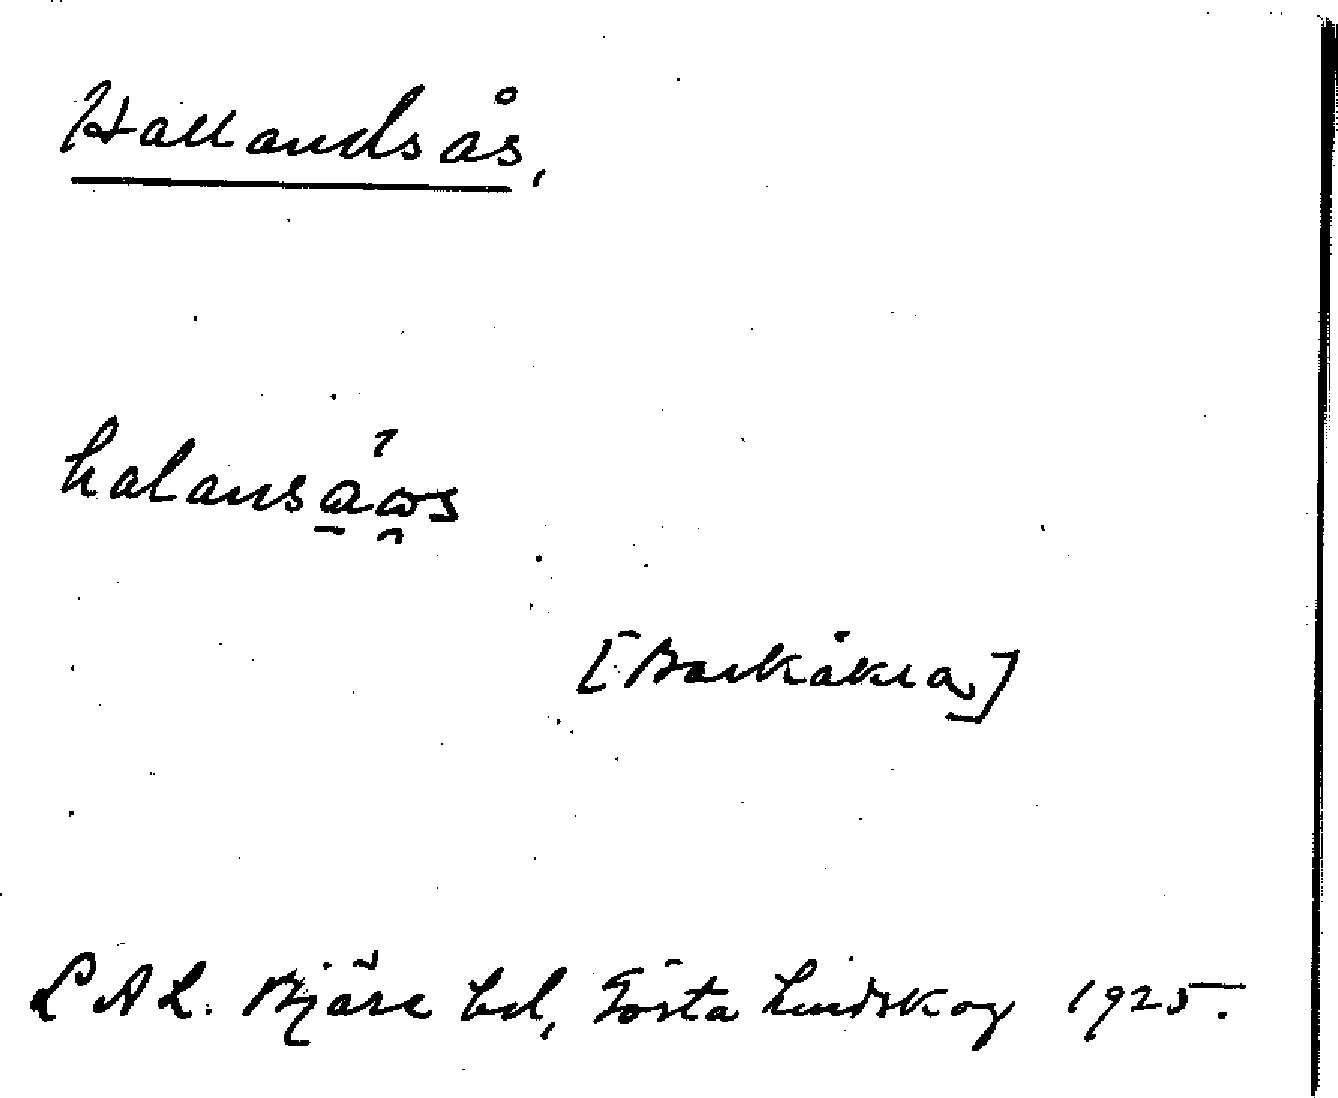 Hallandsås,
halansa̱ω̯s
[Barkåkra]
LAL. Bjäre hd, Gösta Lindskog 1925.